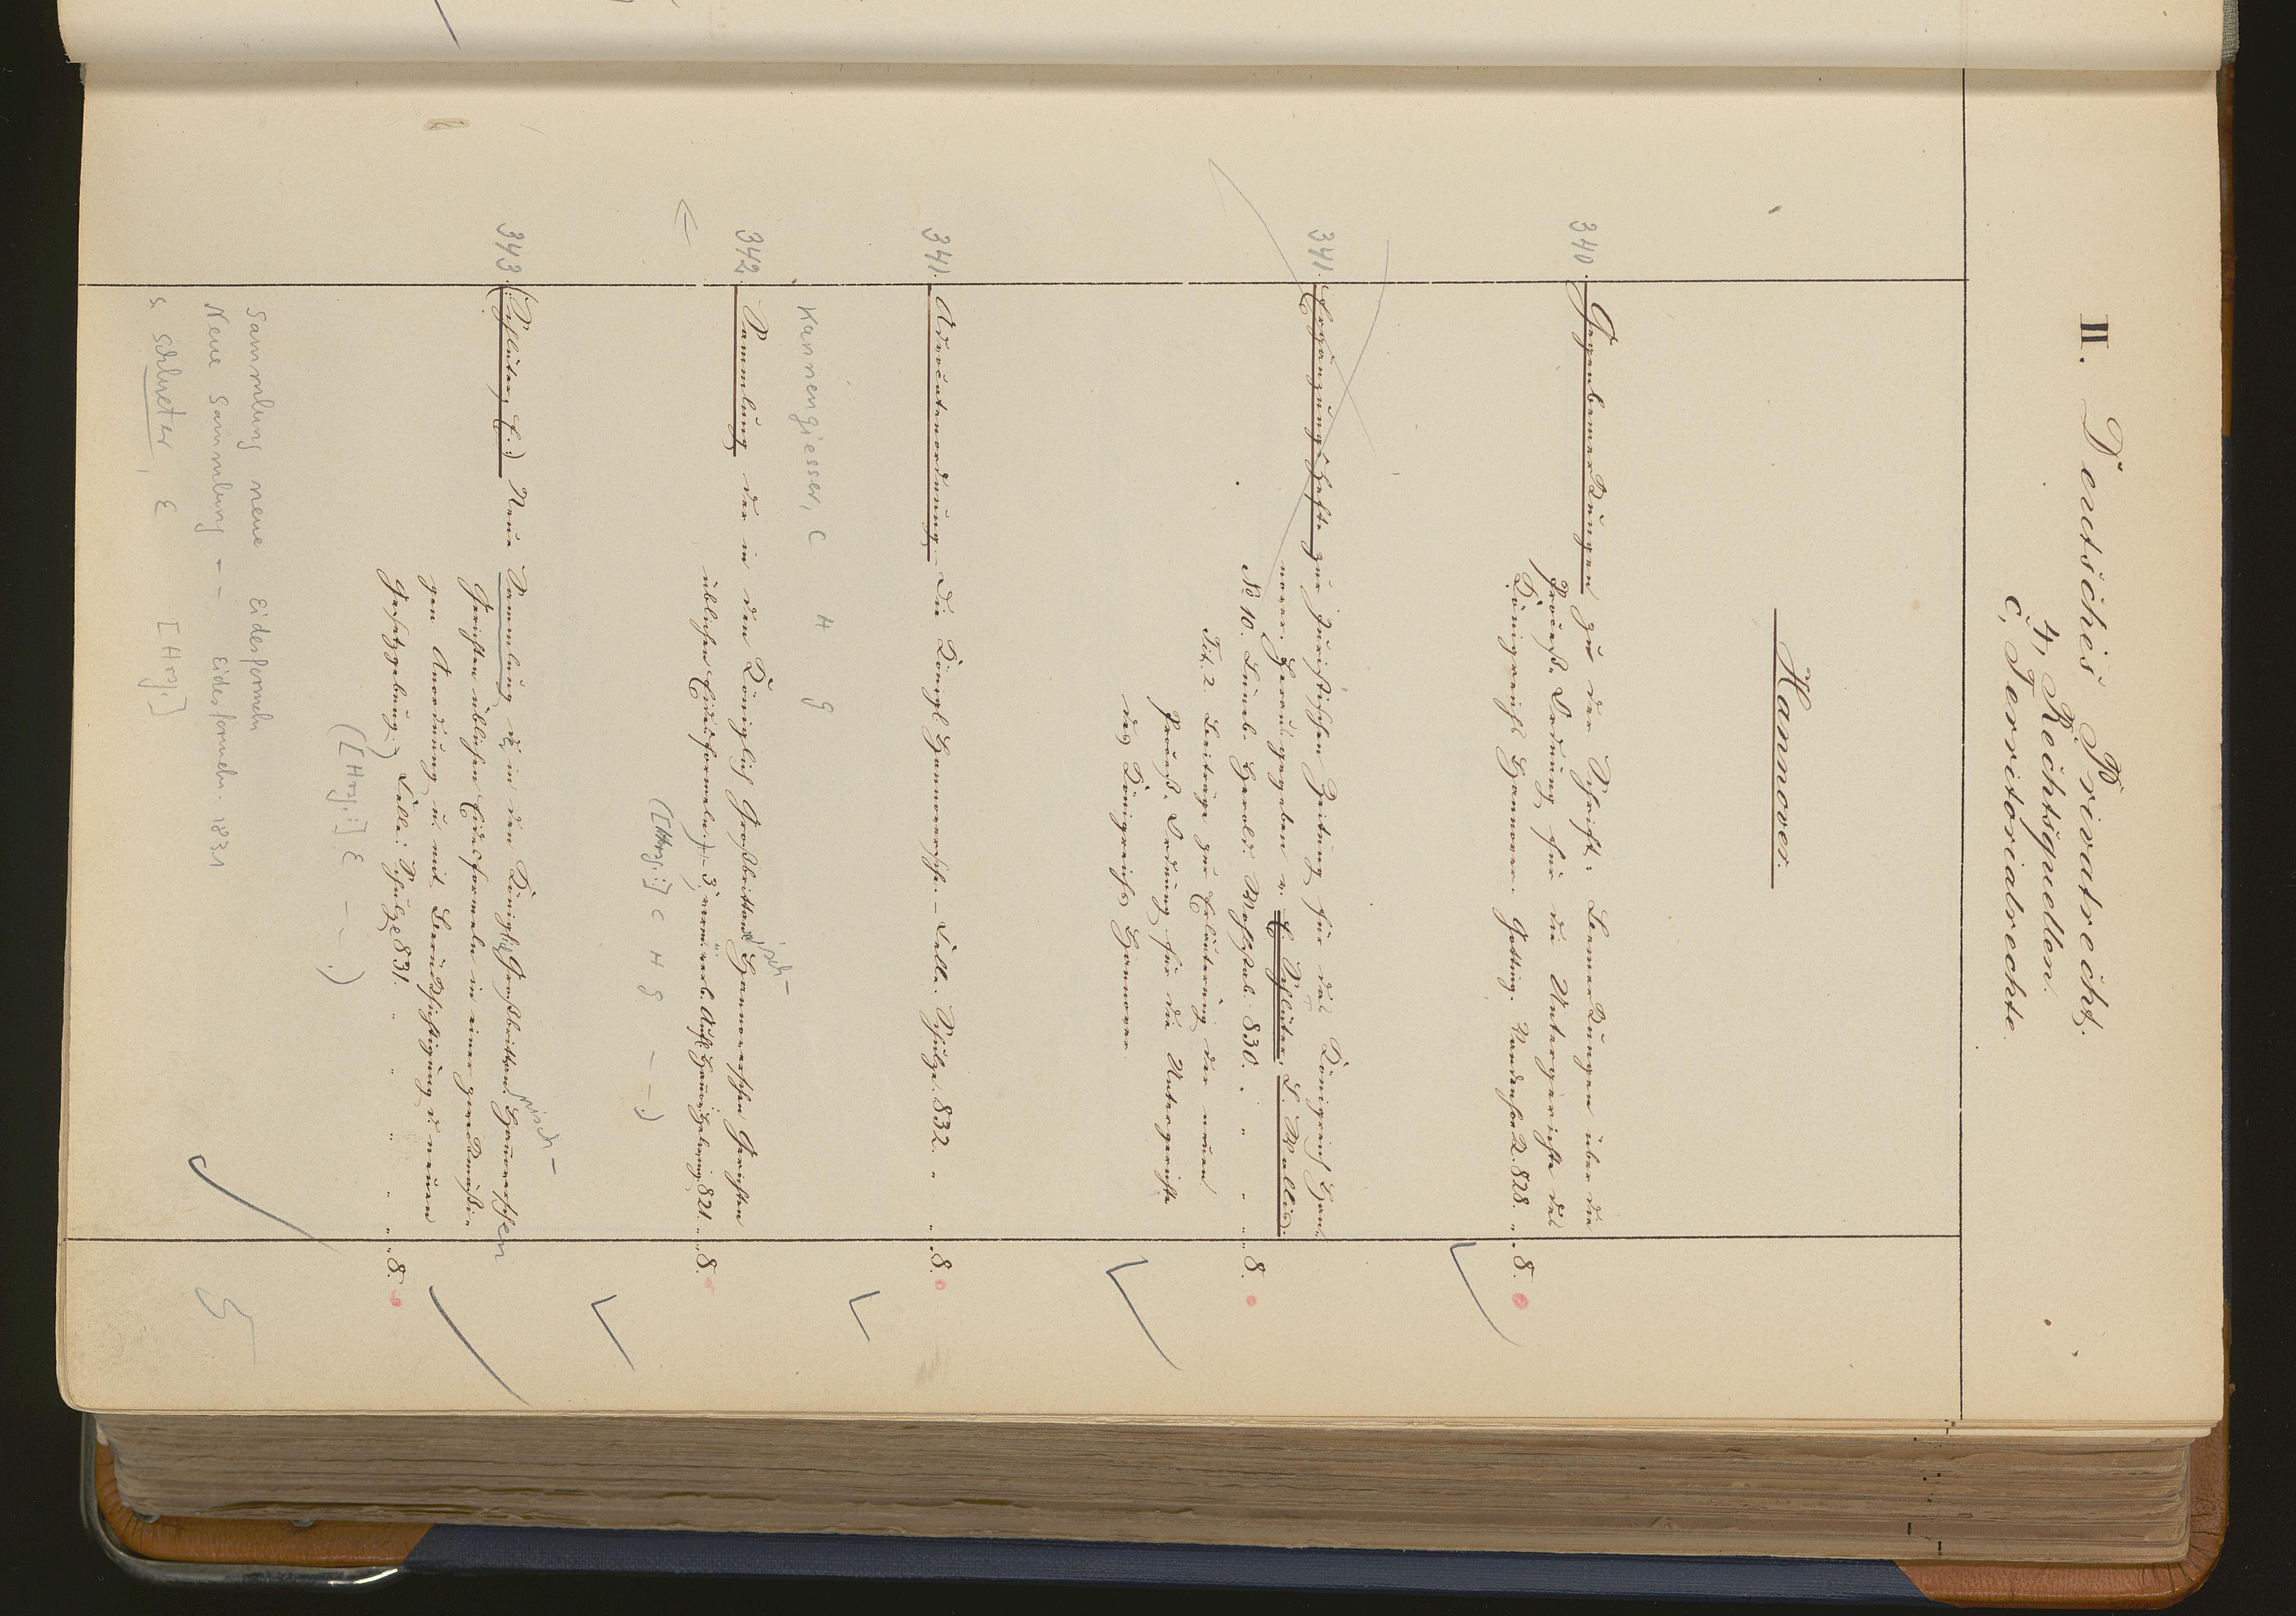 II. Deutsches Privatrecht.
4, Rechtsquellen.
c, Territorialrechte.
Hannover.
340. Gegenbemerkungen zu der Schrift: Bemerkungen über die
Proceß-Ordnung für die Untergerichte des
Königreichs Hannover. Götting. Vandenhoek. 828. " 8.
341. Ergänzungshefte zur juristischen Zeitung für das Königreich Han-
nover. Herausgegeben v. E. Schlüter, L. Wallis.
No 10. Lüneb. Herold u. Wahlstab. 830. " " " " 8.
Tit. 2. Beiträge zur Erläuterung der neuen
Proceß-Ordnung für die Untergerichte
des Königreichs Hannover.
341. Advocatenordnung, Die Königl. Hannoversche. - Celle. Schulze. 832. " " 8.
Kannengiesser, C H G
342. Sammlung der in den Königlich Großbrittanisch- Hannoverschen Gerichten
üblichen Eidesformeln.) - 3, verm. u. verb. Aufl. Hann. Helwing 821. " 8.
([Hrsg.:] C H G - -)
343. (Schlüter, E.:) Neue Sammlung d. in den Königlich Großbrittannisch- Hannoverschen
Gerichten üblichen Eidesformeln in einer zweckmäßi-
gen Anordnung u. mit Berücksichtigung d. neuen
Gesetzgebung.) Celle: Schulze 831. " " " " " 8.
([Hrsg.:] E - - .)
Sammlung neue Eidesformeln
Neue Sammlung - - Eidesformeln. 1831
s. Schlueter, E [Hrsg.]